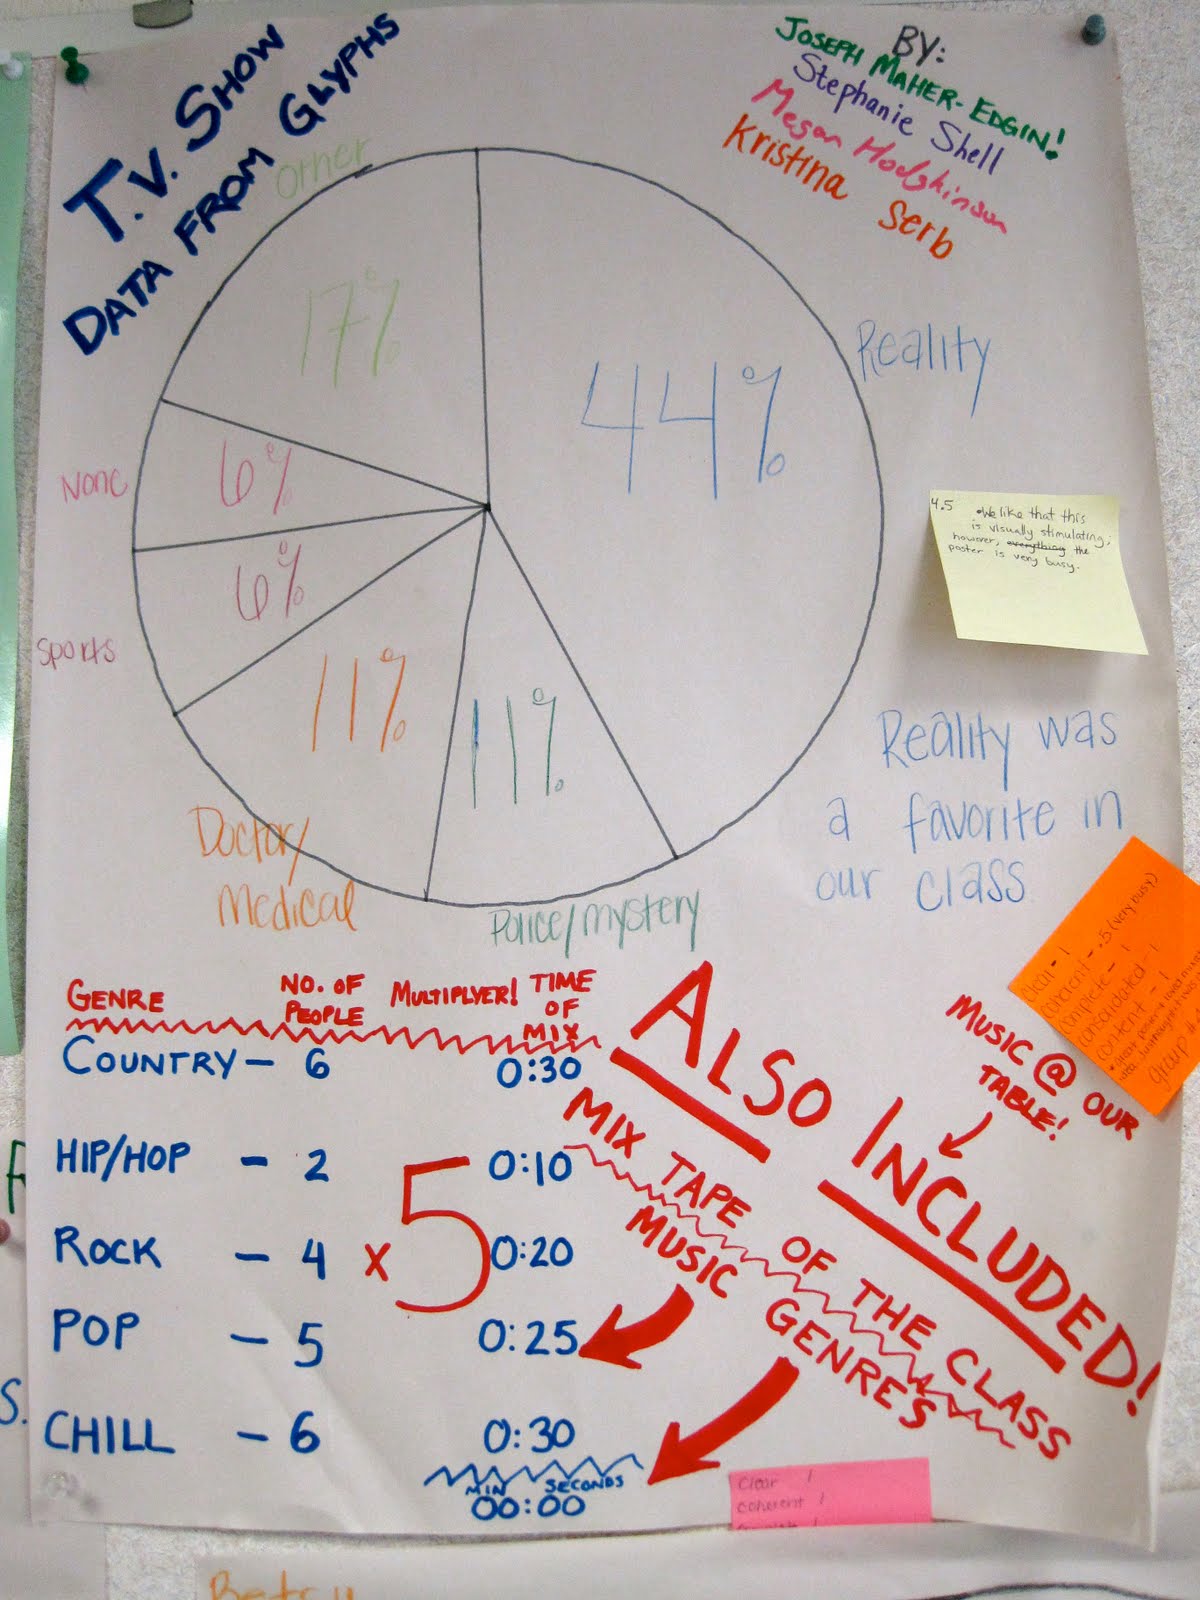 T.V. SHOW
DATA FROM GLYPHS
BY:
JOSEPH MAHER-EDGIN!
Stephanie Shell
Megan Hodgkinson
Kristina Serb
other
17%
44%
Reality
None
6%
6%
sports
11%
11%
Doctor/
Medical
Police/mystery
4.5 •We like that this
is visually stimulating,
however, everything the
poster is very busy.
Reality was
a favorite in
our class
clear - 1
coherent - .5 (very busy)
complete - 1
consolidated - 1
content - 1
group
GENRE NO. OF PEOPLE MULTIPLYER! TIME OF MIX
COUNTRY - 6 0:30
HIP/HOP - 2 0:10
ROCK - 4 x 5 0:20
POP - 5 0:25
CHILL - 6 0:30
MIN SECONDS
00:00
ALSO INCLUDED!
MUSIC @ OUR
TABLE!
MIX TAPE OF THE CLASS
MUSIC GENRES
Clear 1
Coherent 1